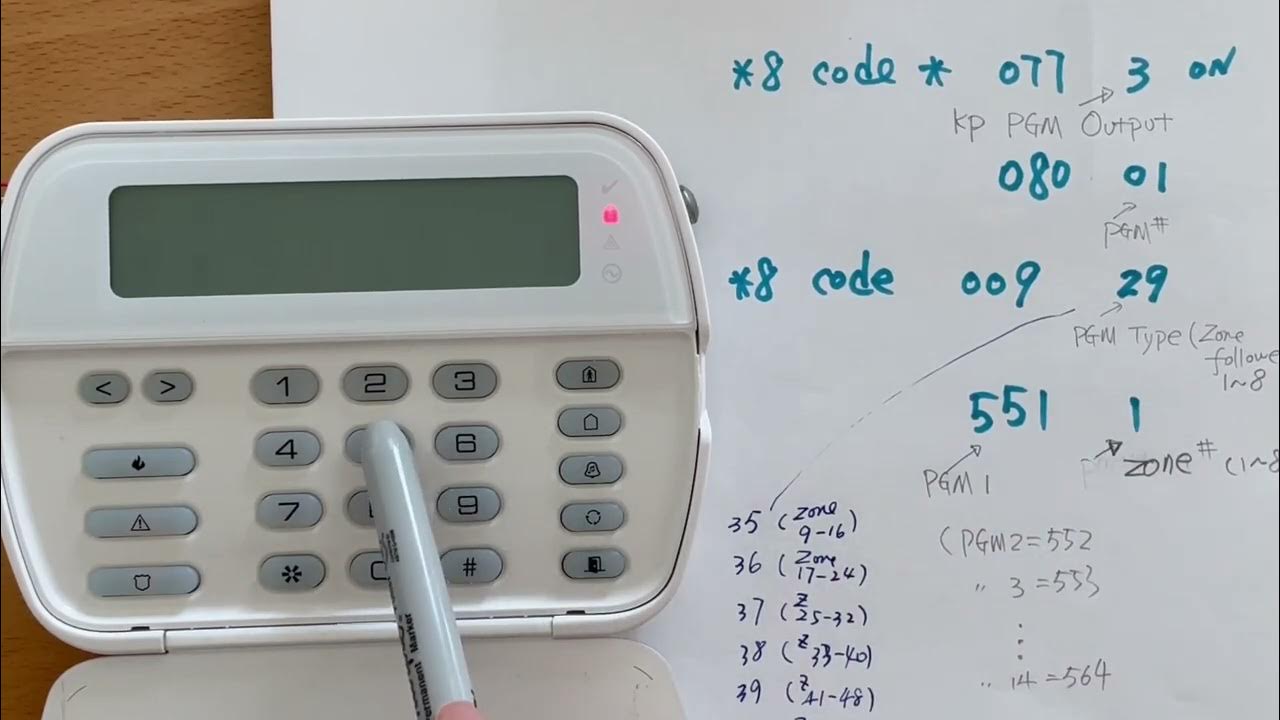 *8 code * 077 3 ON
KP PGM Output
080 01
PGM#
*8 code 009 29
PGM Type (Zone
followe
1~8
551 1
PGM 1
zone# (1~8
35 (Zone
9-16)
36 (Zone
17-24)
37 (Z
25-32)
38 (Z
33-40)
39 (Z
41-48)
(PGM2=552
" 3 =553
" 14 =564
< > 1 2 3
4 6
7 9
* #
Permanent Marker